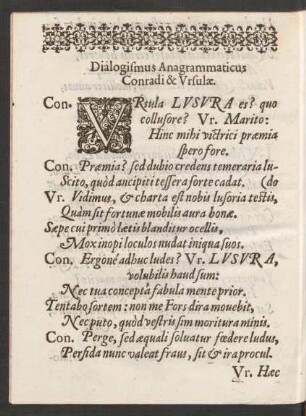 Dialogiſmus Anagrammaticus
Conradi & Vrſulæ.
Con. VRſula LVSVRA es? quo
colluſore? Vr. Marito:
Hinc mihi victrici præmia
ſpero fore.
Con. Præmia? ſed dubio credens temeraria lu-
Scito, quòd ancipiti teſſera ſorte cadat. (do
Vr. Vidimus, & charta est nobis luſoria teſtis,
Quàm ſit fortunæ mobilis aura bonæ.
Sæpe cui primò lætis blanditur ocellis,
Mox inopi loculos nudat iniqua ſuos.
Con. Ergone adhuc ludes? Vr. LVSVRA,
volubilis haud ſum:
Nec tua concepta fabula mente prior.
Tentabo ſortem: non me Fors dira movebit,
Nec puto, quòd veſtris ſim moritura minis.
Con. Perge, ſed æquali ſoluatur fœdere ludus,
Perfida nunc valeat fraus, ſit & ira procul.
Vr. Hæc